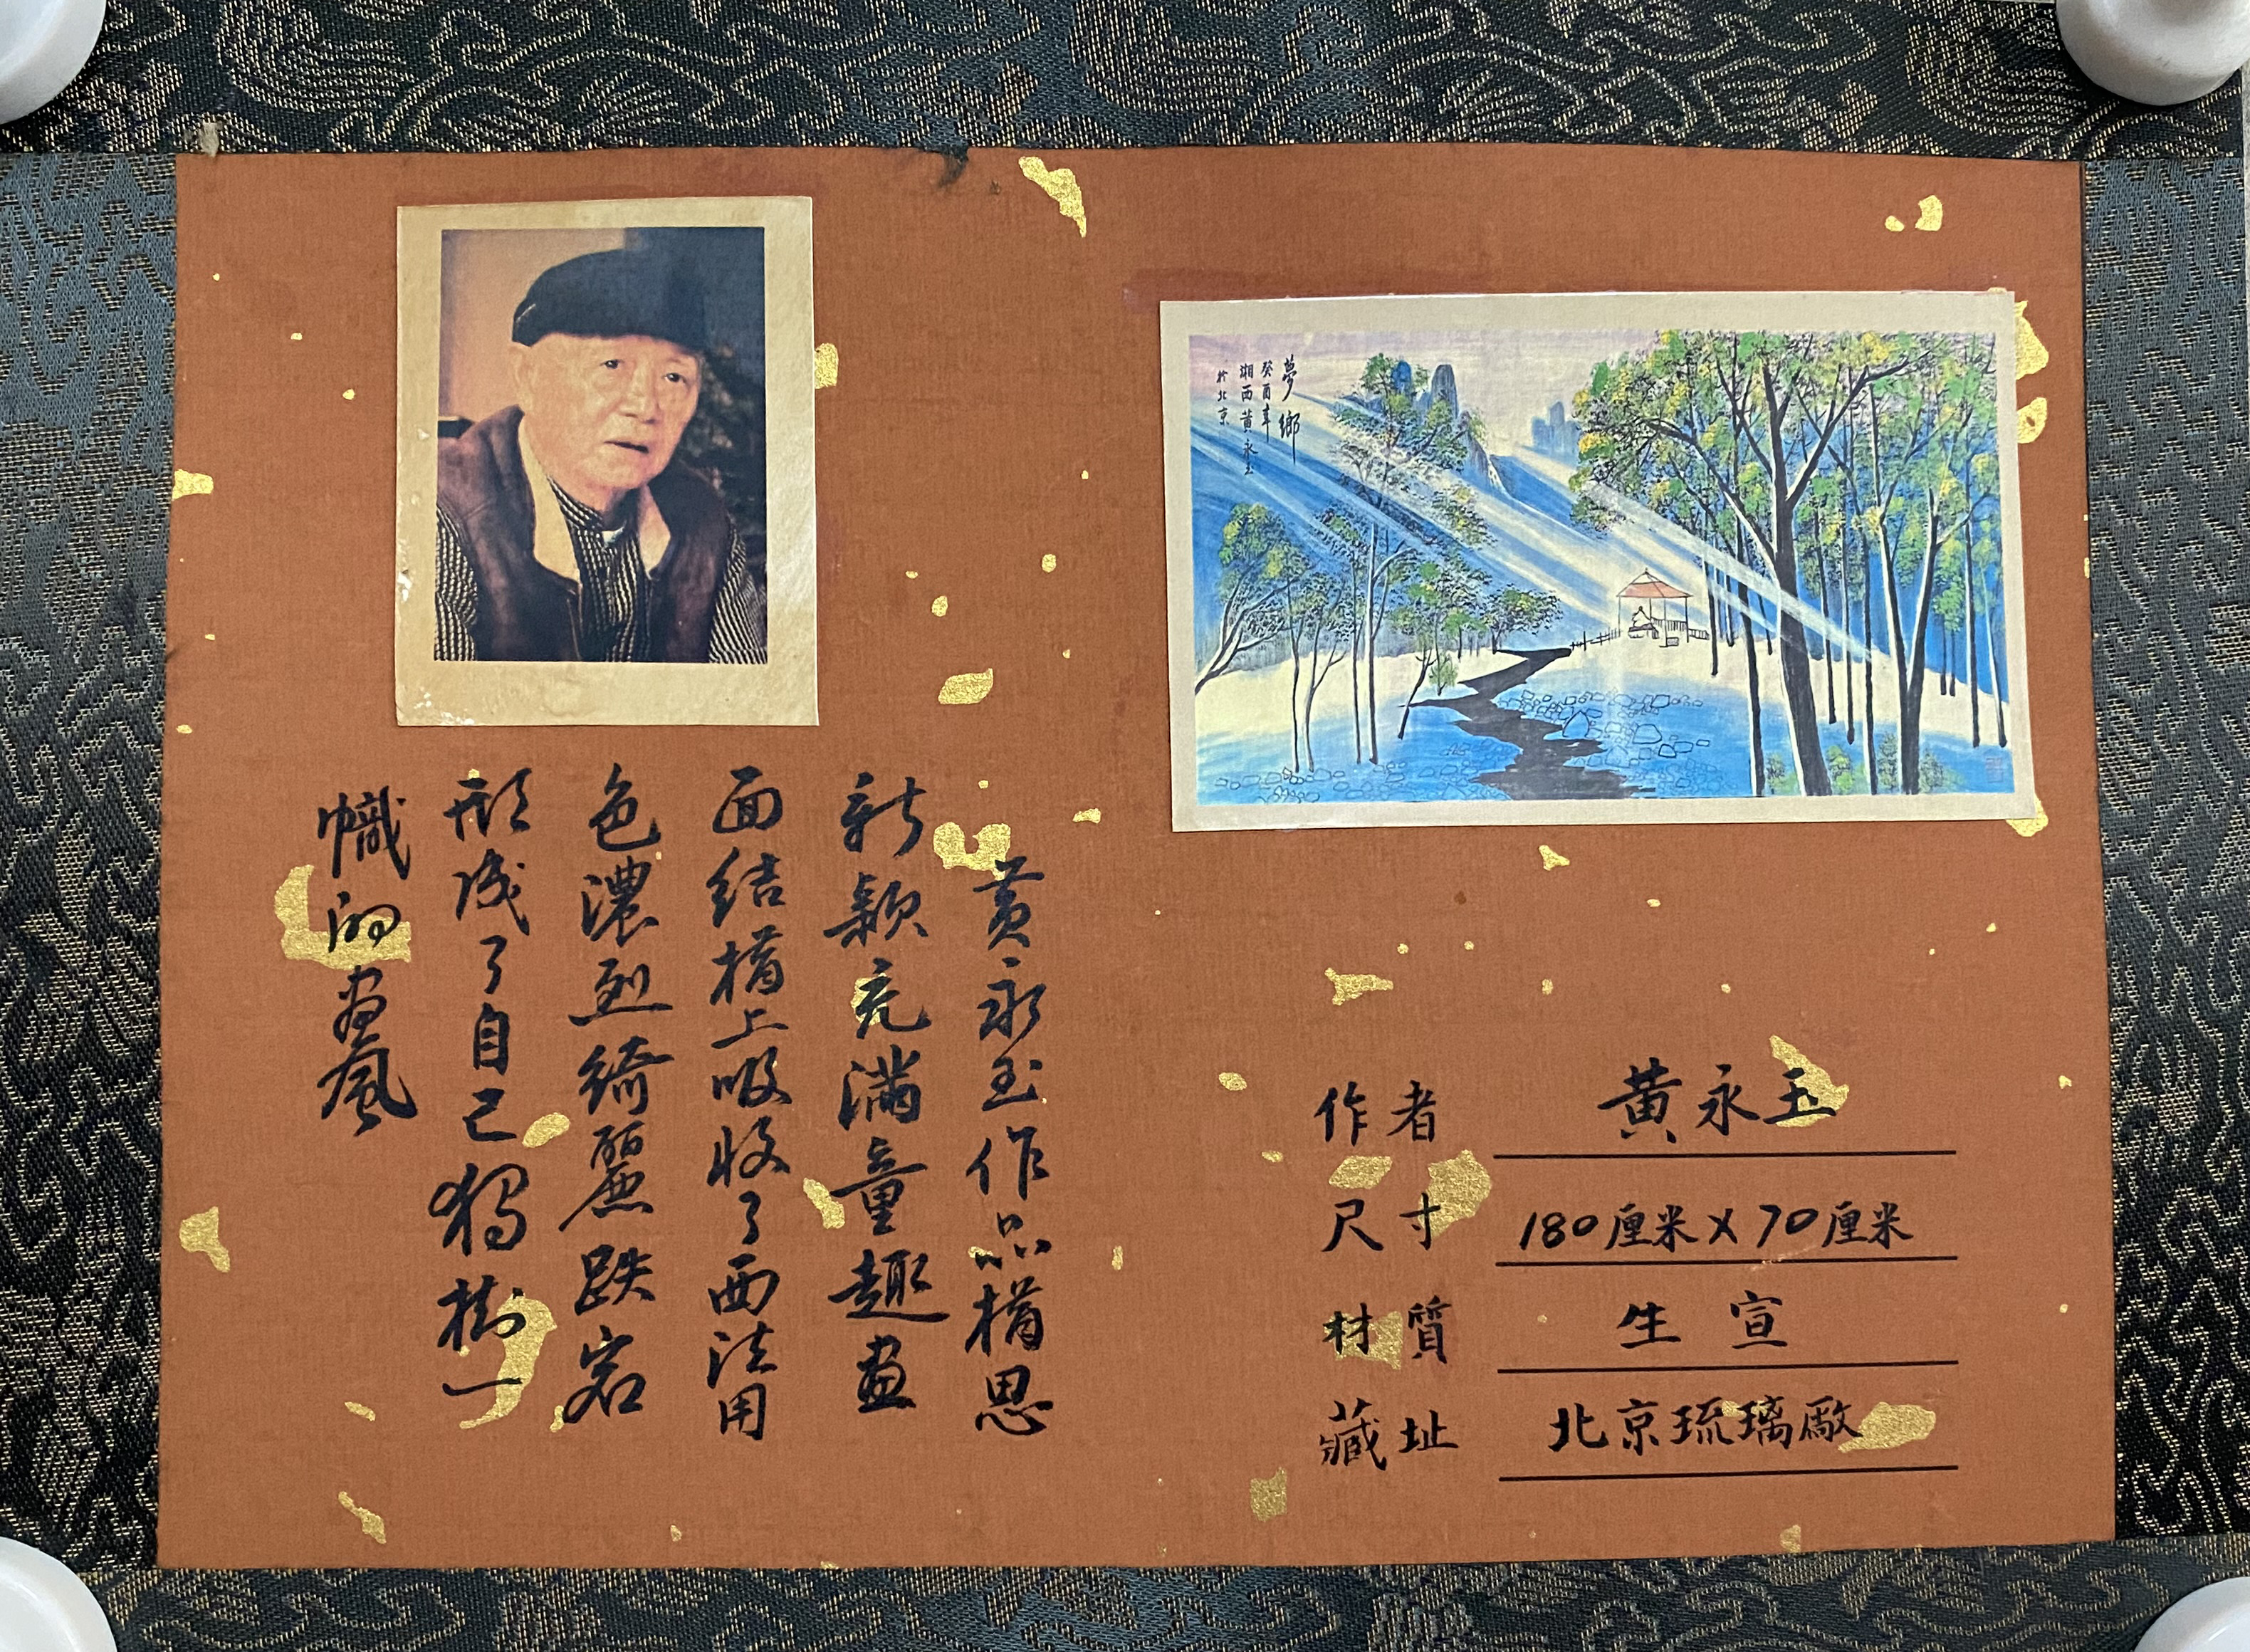 夢鄉
癸酉年
湘西黃永玉
於北京
黄永玉作品構思
新穎充滿童趣畫
面結構上吸收了西法用
色濃烈綺麗跌宕
形成了自己獨樹一
幟的畫風
作者 黃永玉
尺寸 180厘米X70厘米
材質 生宣
藏址 北京琉璃廠